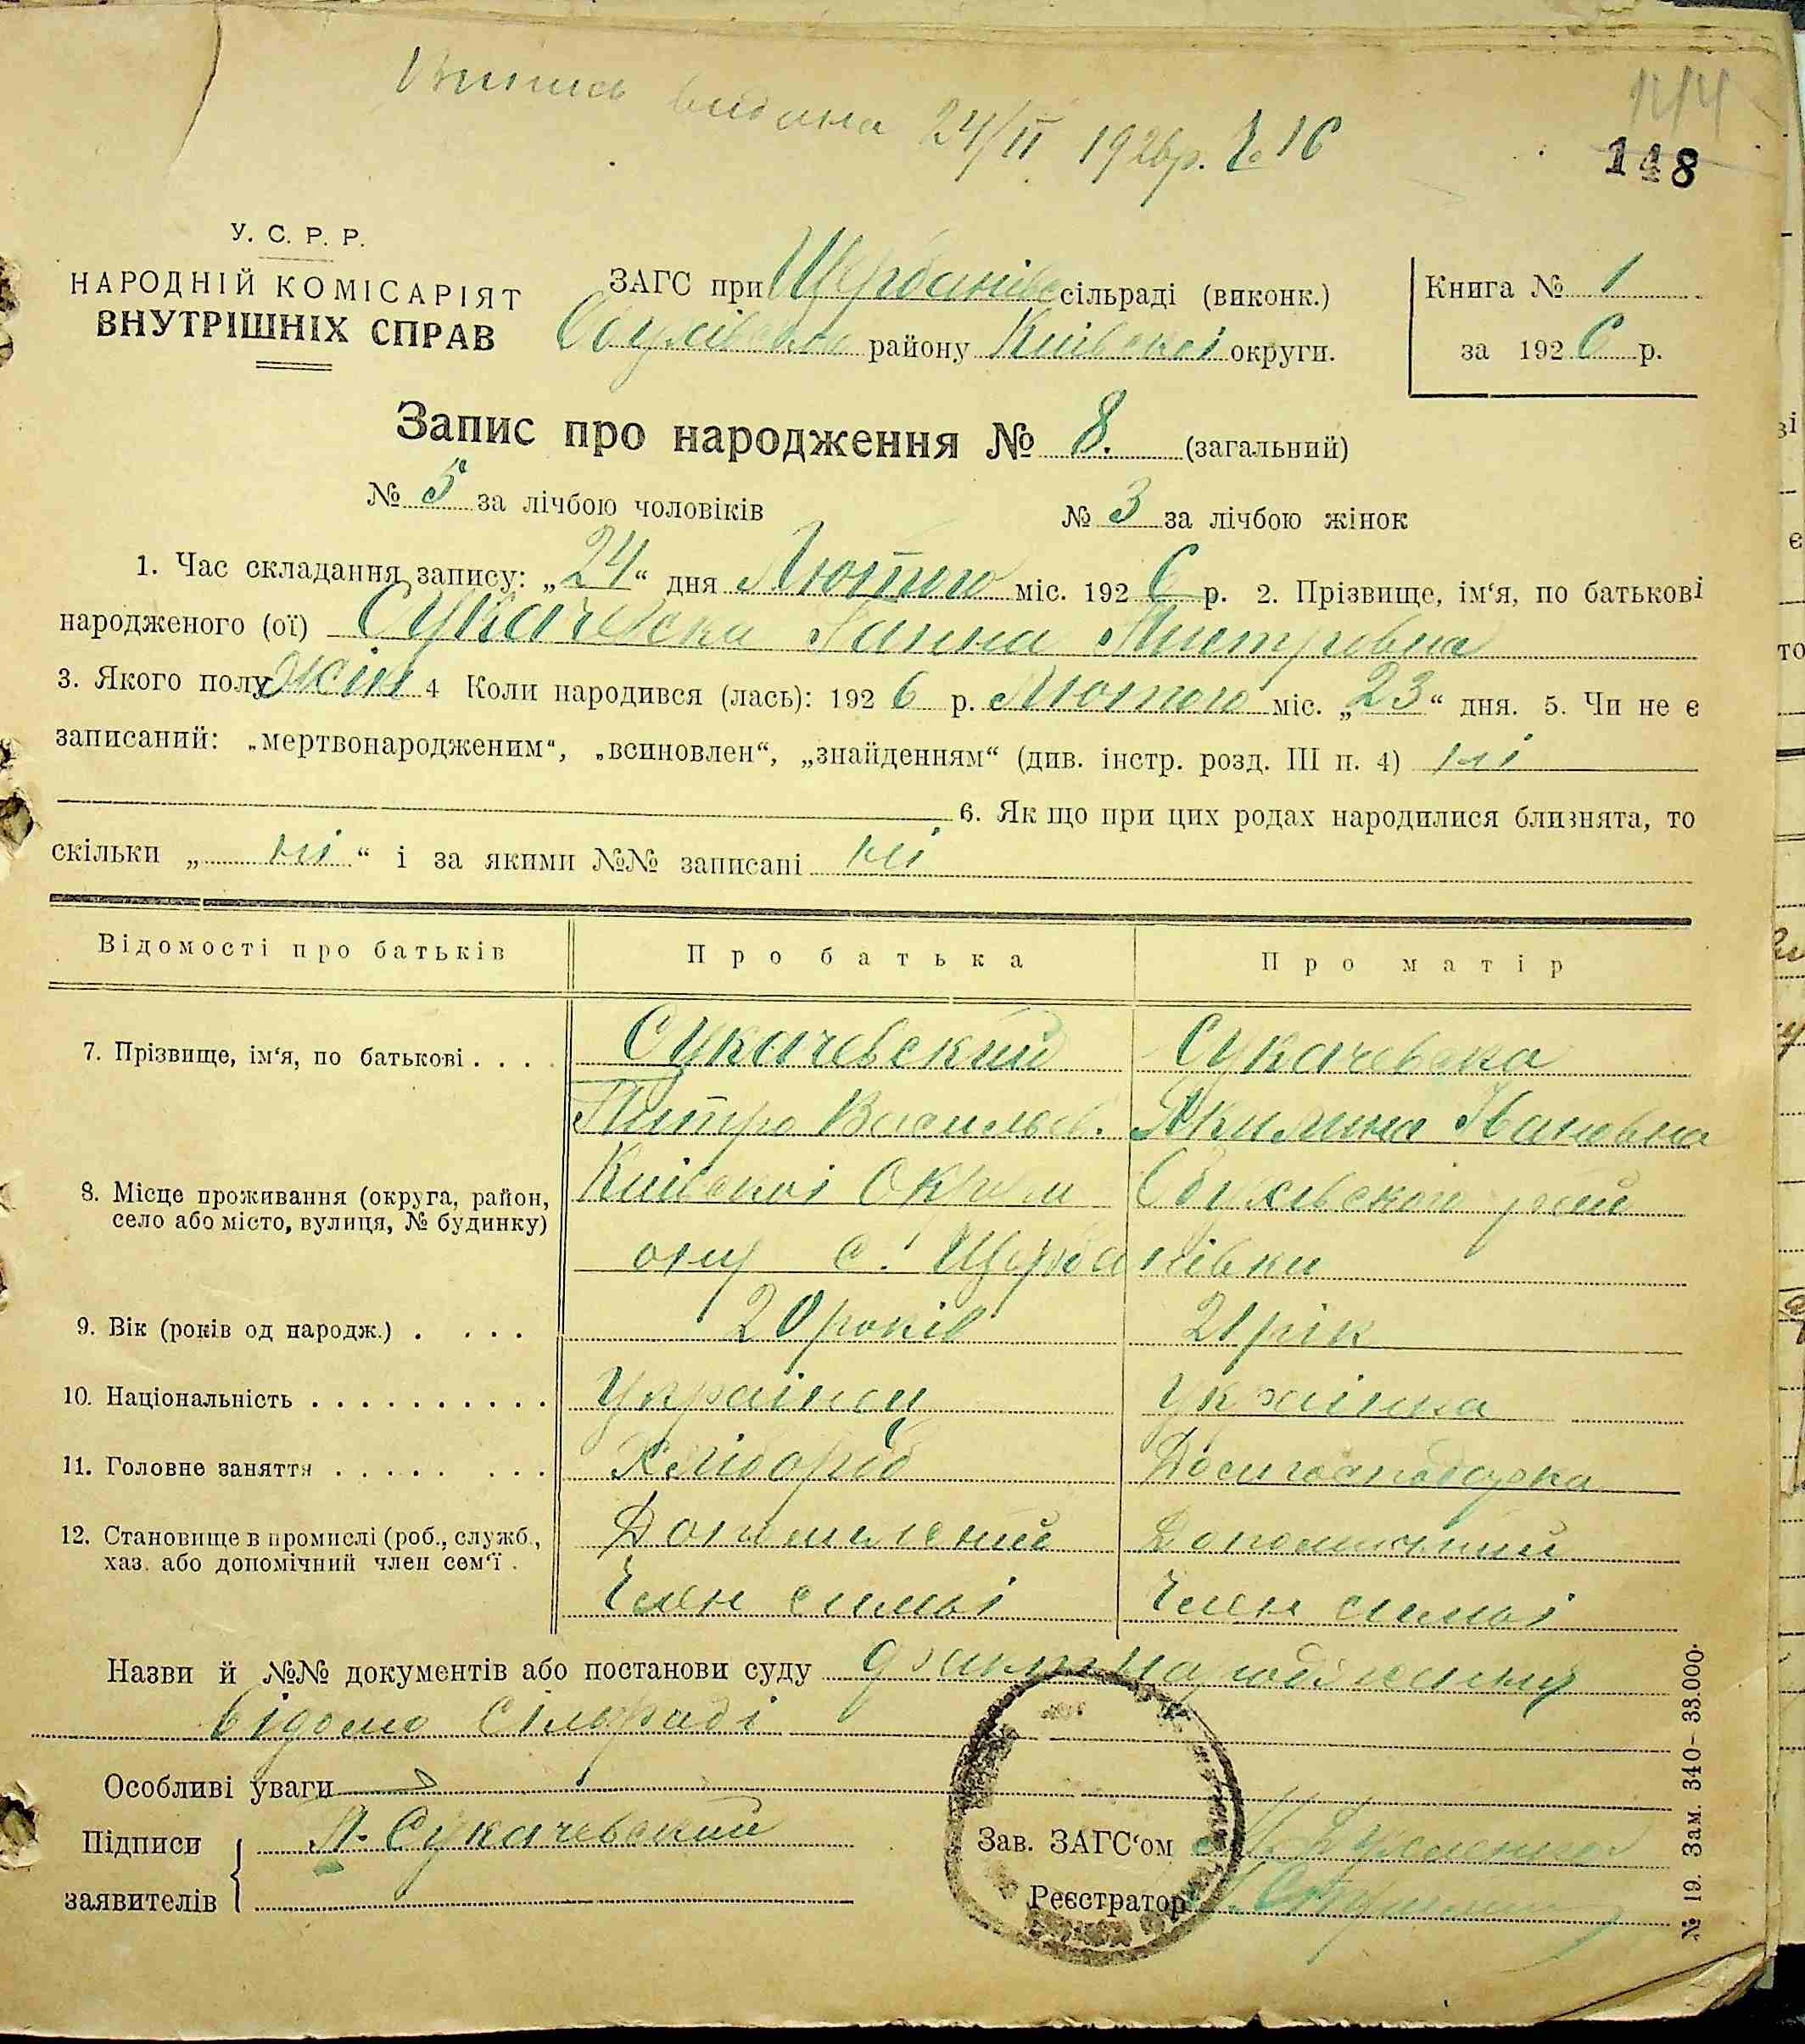 Випись видана 24/II 1926р. № 16
144
148
У. С. Р. Р.
НАРОДНІЙ КОМІСАРІЯТ
ВНУТРІШНІХ СПРАВ
ЗАГС при Щербанівс сільраді (виконк.)
Обухівсько району Київської округи.
Книга № 1
за 1926 р.
Запис про народження № 8. (загальний)
№ 5 за лічбою чоловіків № 3 за лічбою жінок
1. Час складання запису: „24“ дня Лютого міс. 1926 р. 2. Прізвище, ім‘я, по батькові
народженого (ої) Сукачевска Ганна Митровна
3. Якого полу жін 4 Коли народився (лась): 1926 р. Лютого міс. „23“ дня. 5. Чи не є
записаний: „мертвонародженим“, „всиновлен“, „знайденням“ (див. інстр. розд. III п. 4) ні
6. Як що при цих родах народилися близнята, то
скільки „ ні “ і за якими №№ записані ні
Відомості про батьків Про батька Про матір
7. Прізвище, ім‘я, по батькові . . . . Сукачевский Сукачевска
Митро Васильов. Якилина Івановна
8. Місце проживання (округа, район, Київскоі Округи Обухівскои рай
село або місто, вулиця, № будинку)
ону с. Щербанівки
9. Вік (років од народж.) . . . . 20 років 21 рік
10. Національність . . . . . . . . . . Украінец Украінка
11. Головне заняття . . . . . . . . Хлібороб Домогосподарка
12. Становище в промислі (роб., служб., Допомичний Допомичний
хаз. або допомічний член сем‘ї .
Член симьі Член симьі
Назви й №№ документів або постанови суду факт народження
відомо сільраді
Особливі уваги
Підписи
заявителів
Сукачевский
Зав. ЗАГС‘ом
Реєстратор
№ 19. Зам. 340–38.000.